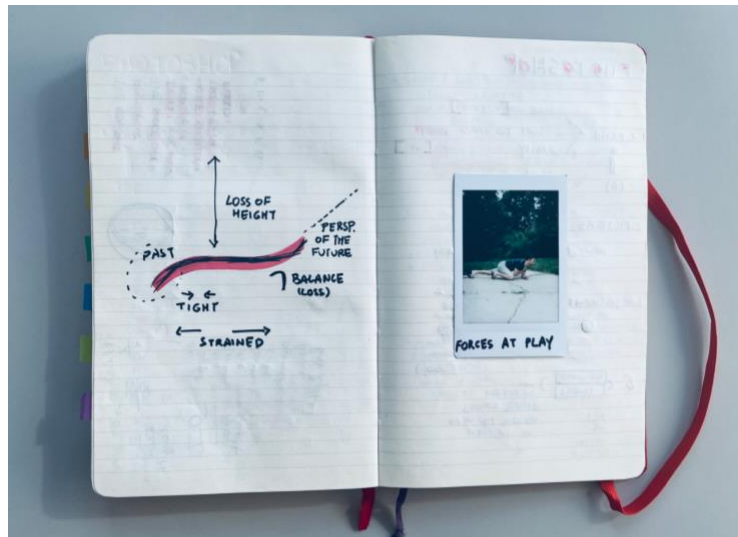 LOSS OF
HEIGHT
PERSP.
OF THE
FUTURE
PAST
BALANCE
(LOSS)
TIGHT
STRAINED
FORCES AT PLAY